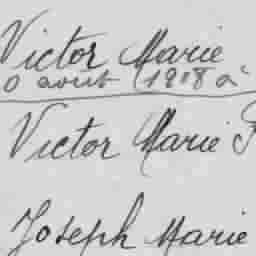 Victor Marie
0 aout (1918 à
Victor Marie
Joseph Marie